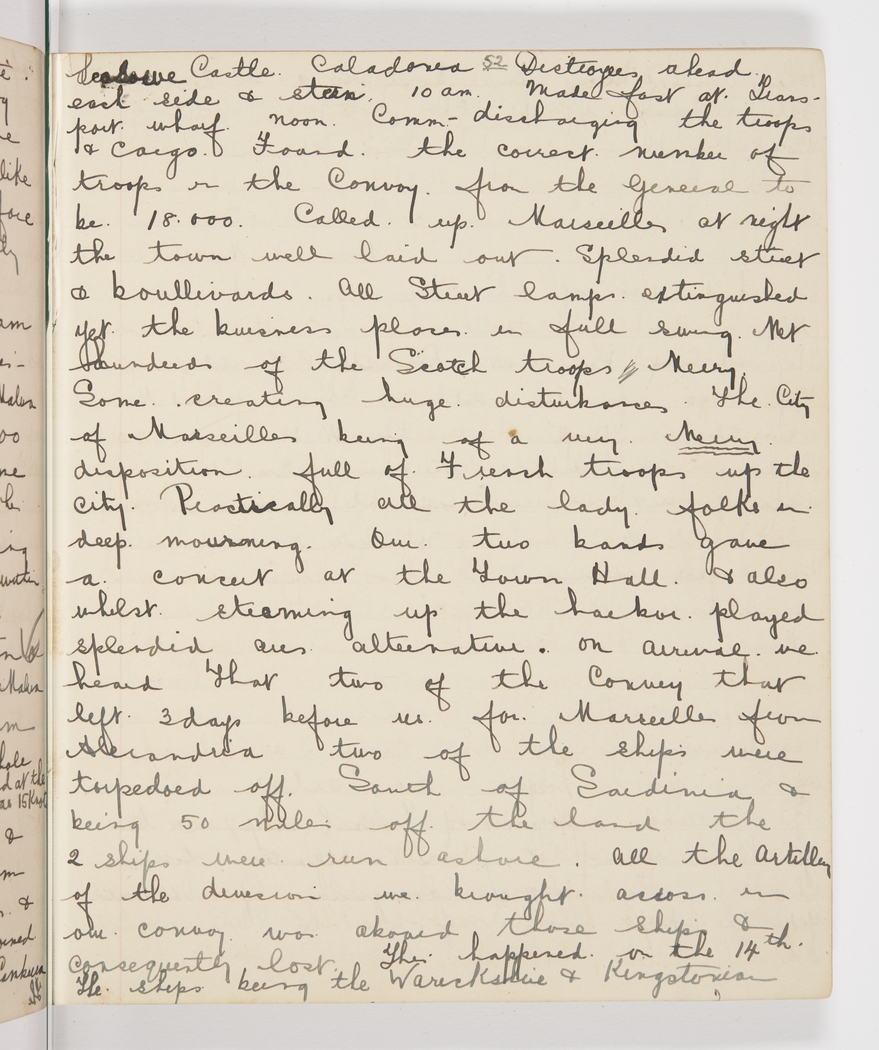 Leasowe Castle. Caladonea 52 Destroyers ahead
each side & stern. 10 am. Made fast at Trans-
port wharf. noon. Comm- discharging the troops
& Cargo. Found. the correct. number of
troops in the Convoy. from the General to
be. 18.000. Called. up. Marseilles at night
the town well laid out. Splendid street
& boullivards. All Street lamps. extinguished
yet. the buisness places. in full swing. Met
hundreds of the Scotch troops Merry.
Some. creating huge. disturbances. The. City
of Marseilles being of a very. Merry.
disposition. full of. French troops up the
city. Practically all the lady. folks in.
deep. mourning. Our. two bands gave
a. concert at the Town Hall. & also
whilst. steaming up the harbor. played
splendid airs alternative. on arrival. we
heard That two of the Convoy that
left. 3 days before us. for. Marseilles from
Alexandria two of the ships were
torpedoed off. South of Sardinia &
being 50 miles off. the land the
2 ships were. run ashore. All the Artillery
of the division we. brought. across. in
our. convoy. was aboard those ships &
consequently lost. This. happened. on the 14th.
The. ships being the Warickshire & Kingstonian